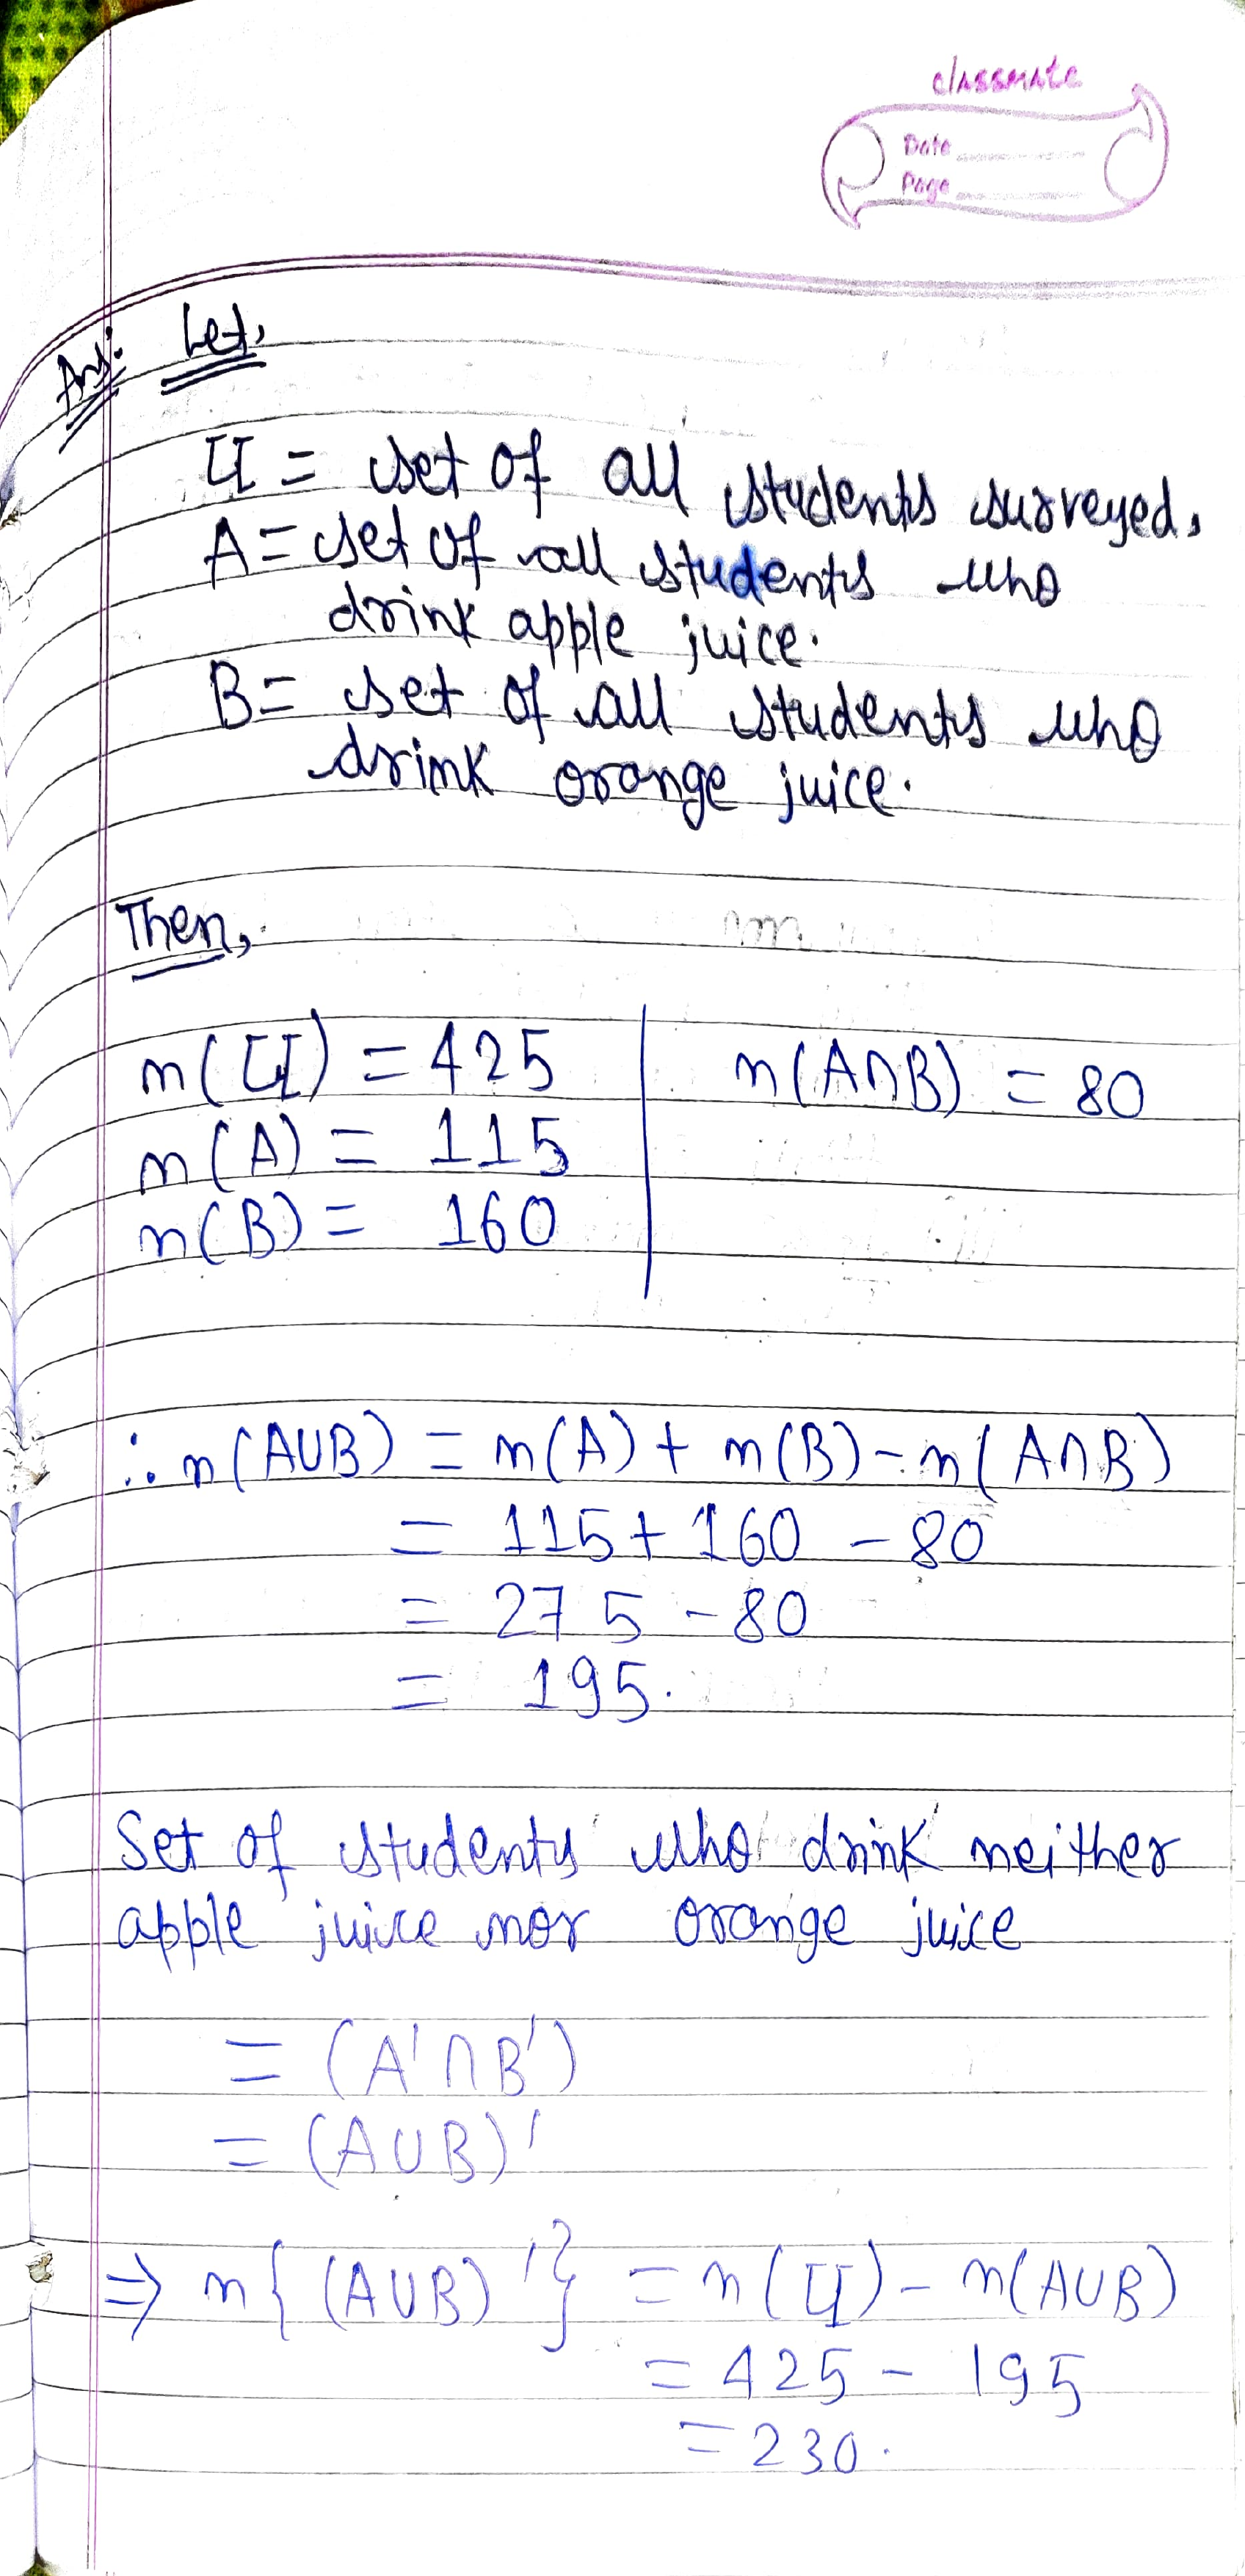 classmate
Date
Page
Ans: Let,
U = set of all students surveyed,
A = set of all students who
drink apple juice.
B = set of all students who
drink orange juice.
Then,
n(U) = 425 | n(A∩B) = 80
n(A) = 115
n(B) = 160
∴ n(A∪B) = n(A) + n(B) - n(A∩B)
= 115 + 160 - 80
= 275 - 80
= 195.
Set of students who drink neither
apple juice nor orange juice
= (A'∩B')
= (A∪B)'
⇒ n{(A∪B)'} = n(U) - n(A∪B)
= 425 - 195
= 230.